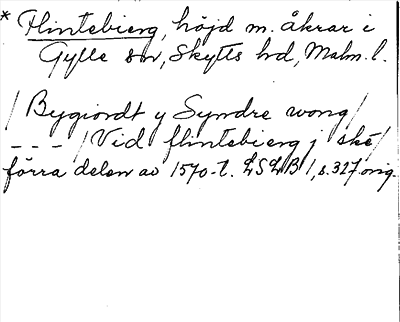 * Flintebierg, höjd m. åkrar i
Gylle sn, Skytts hd, Malm. l.
/ Bygiordt y Syndre wong /
--- / Vid flintebierg j ske /
förra delen av 1570-t. LSLB 1, s. 327 orig.